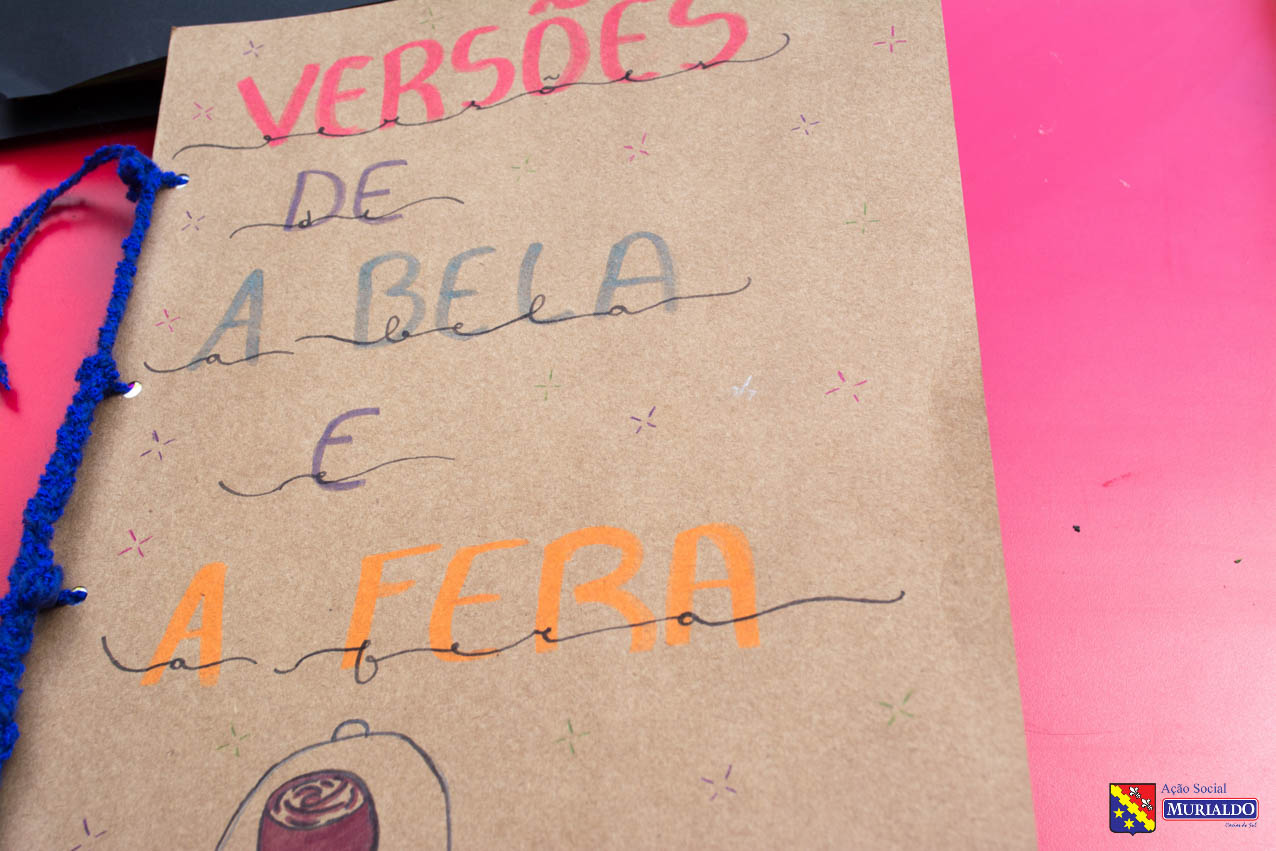 VERSÕES
versões
DE
de
A BELA
a bela
E
e
A FERA
a fera
Ação Social
MURIALDO
Caxias do Sul